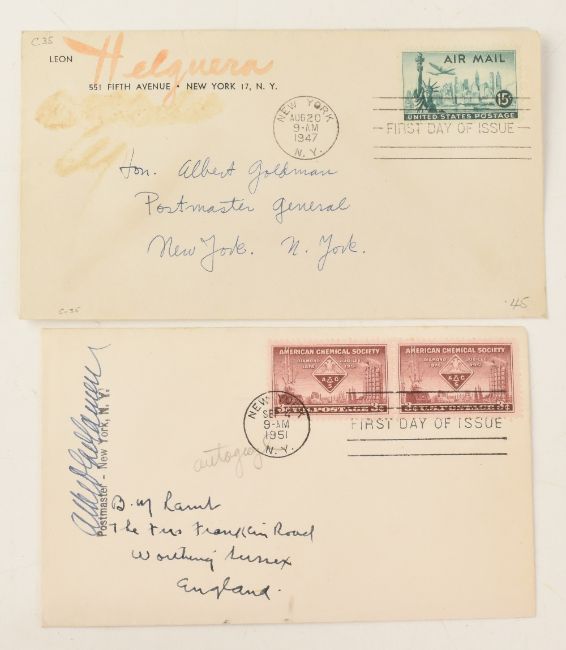 C35
LEON Helguera
551 FIFTH AVENUE • NEW YORK 17, N. Y.
AIR MAIL
15¢
UNITED STATES POSTAGE
NEW YORK
AUG 20
9-AM
1947
N.Y.
FIRST DAY OF ISSUE
Hon. Albert Goldman
Postmaster General
New York. N. York.
C-35
.45
AMERICAN CHEMICAL SOCIETY
DIAMOND JUBILEE
1876 1951
AMERICAN CHEMICAL SOCIETY
DIAMOND JUBILEE
1876 1951
NEW YORK
SEP 4
9-AM
1951
N.Y.
FIRST DAY OF ISSUE
Postmaster - New York, N. Y.
B. W. Lamb
The Firs Franklin Road
Worthing Sussex
England.